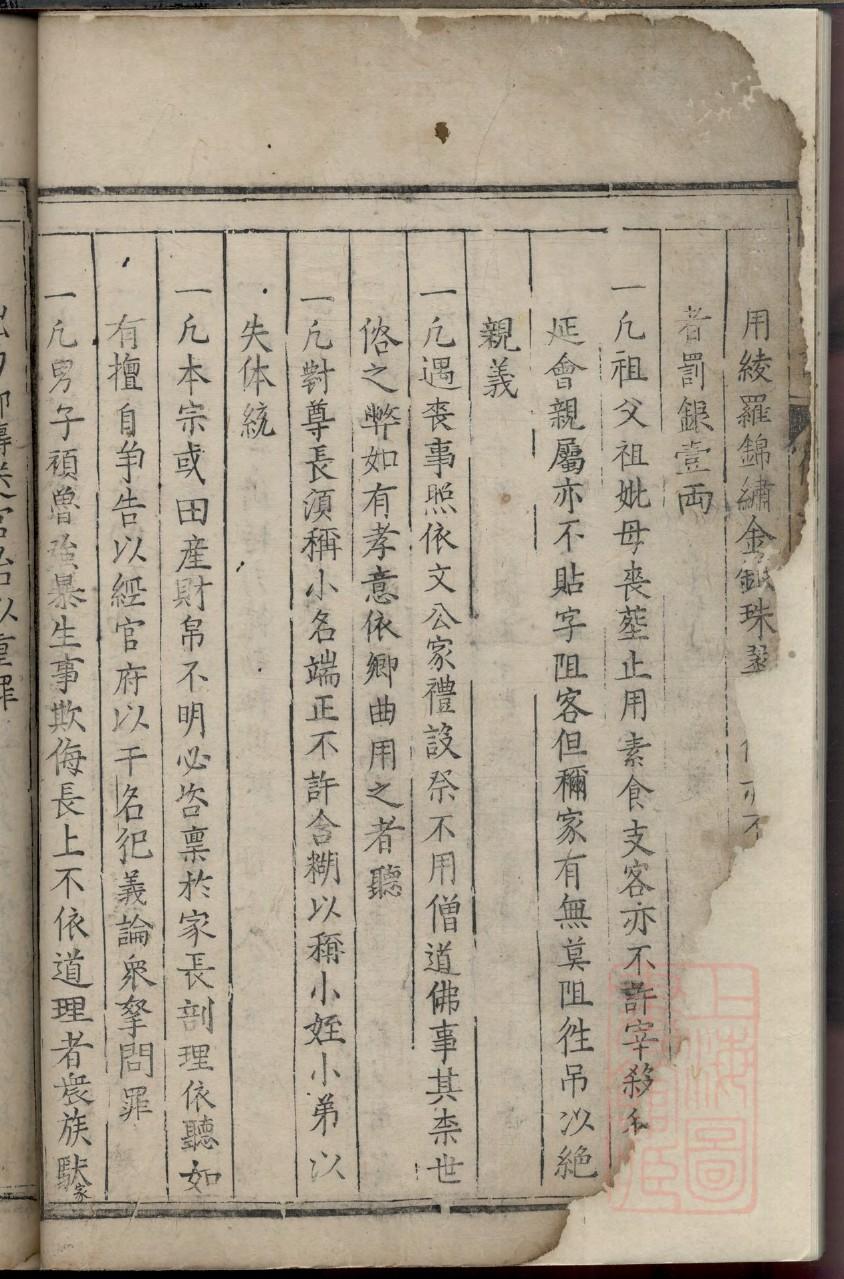 用綾羅錦繡金銀珠翠
者罰銀壹両
一凢祖父祖妣母喪塟止用素食支客亦不許宰殺
延會親屬亦不貼字阻客但稱家有無莫阻徃吊以絶
親義
一凢遇喪事照依文公家禮設祭不用僧道佛事其柰世
俗之弊如有孝意依鄉曲用之者聽
一凢對尊長湏稱小名端正不許含糊以稱小姪小弟以
失体統
一凢本宗或田産財帛不明必咨禀於家長剖理依聽如
有擅自争告以經官府以干名犯義論衆拏問罪
一凢男子頑魯強暴生事欺侮長上不依道理者衆族馱家
上海圖